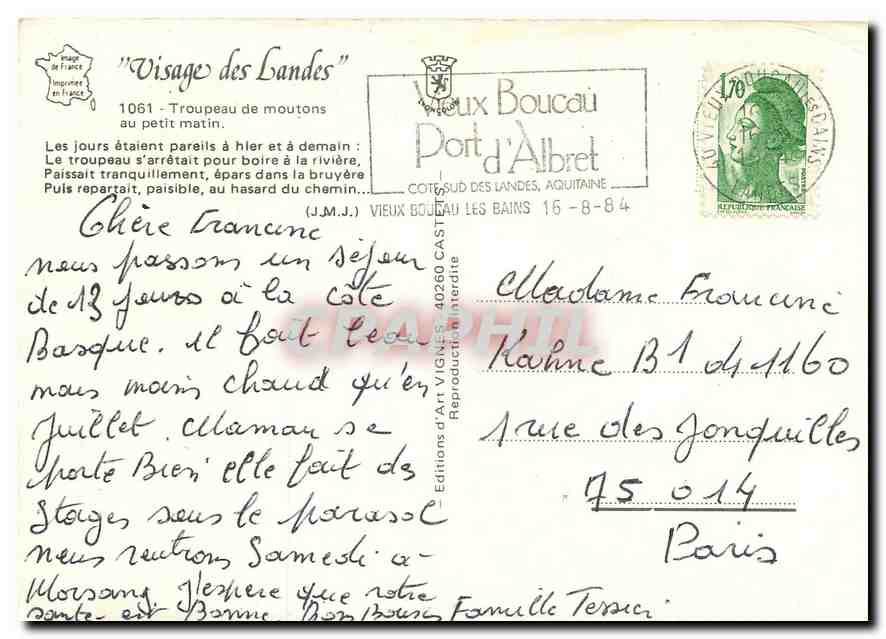 Image
de France
Imprimée
en France
"Visage des Landes"
1061 - Troupeau de moutons
au petit matin.
Les jours étaient pareils à hier et à demain :
Le troupeau s'arrêtait pour boire à la rivière,
Paissait tranquillement, épars dans la bruyère
Puis repartait, paisible, au hasard du chemin...
(J.M.J.)
Vieux Boucau
Port d'Albret
COTE SUD DES LANDES, AQUITAINE
VIEUX BOUCAU LES BAINS 16-8-84
1,70
REPUBLIQUE FRANÇAISE
Editions d'Art VIGNES - 40260 CASTETS
Reproduction interdite
CPAPHIL
Chère Francine
nous passons un séjour
de 13 jours à la côte
Basque. il fait beau
mais moins chaud qu'en
Juillet. Maman se
porte Bien elle fait des
Stages sous le parasol
nous rentrons Samedi à
Morsang. J'espère que votre
santé est Bonne. Bons Bousis Famille
Madame Francine
Kahne B1 d 1160
1 rue des Jonquilles
75 014
Paris